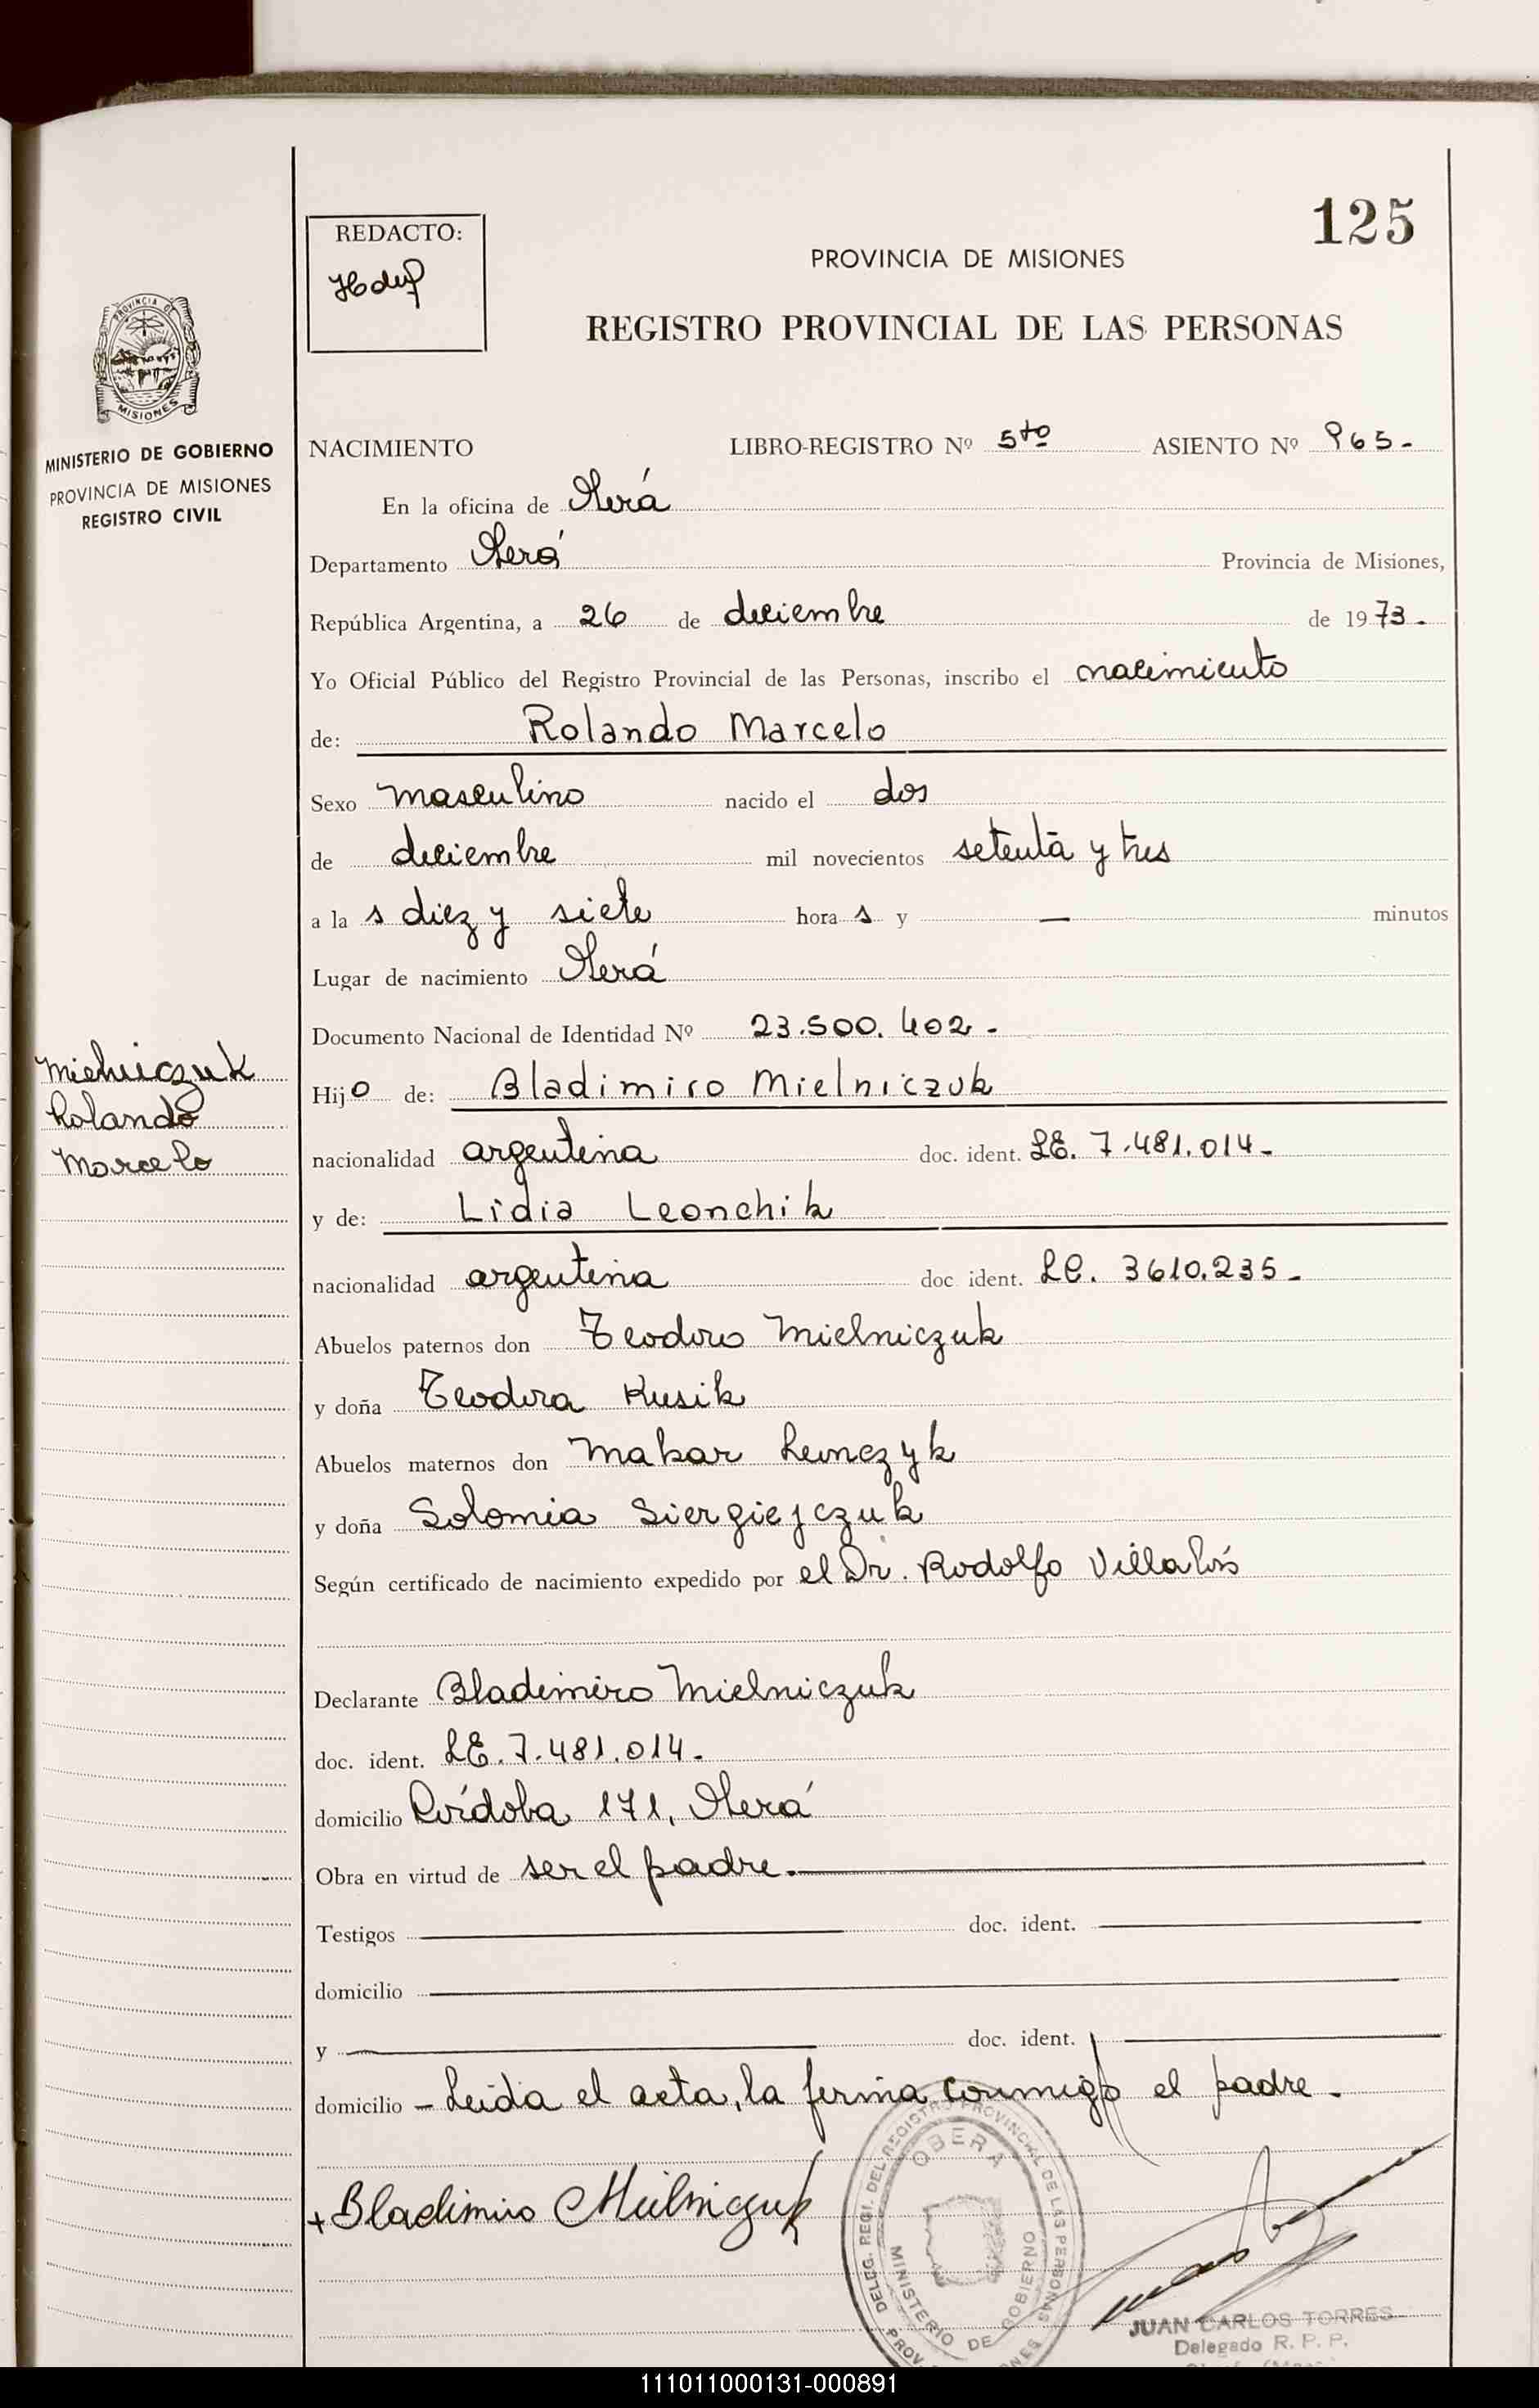 125
REDACTO:
PROVINCIA DE MISIONES
REGISTRO PROVINCIAL DE LAS PERSONAS
PROVINCIA DE
MISIONES
MINISTERIO DE GOBIERNO
PROVINCIA DE MISIONES
REGISTRO CIVIL
NACIMIENTO LIBRO-REGISTRO Nº 5to ASIENTO Nº 965-
En la oficina de Oberá
Departamento Oberá Provincia de Misiones,
República Argentina, a 26 de diciembre de 1973.
Yo Oficial Público del Registro Provincial de las Personas, inscribo el nacimiento
de: Rolando Marcelo
Sexo masculino nacido el dos
de diciembre mil novecientos setenta y tres
a la s diez y siete hora s y — minutos
Lugar de nacimiento Oberá
Documento Nacional de Identidad Nº 23.500.402-
Mielniczuk
Rolando
Marcelo
Hijo de: Bladimiro Mielniczuk
nacionalidad argentina doc. ident. LE. 7.481.014-
y de: Lidia Leonchik
nacionalidad argentina doc ident. LC. 3610.235-
Abuelos paternos don Teodoro Mielniczuk
y doña Teodora Kusik
Abuelos maternos don Makar
y doña Solomia Siergiejczuk
Según certificado de nacimiento expedido por el Dr. Rodolfo Villalós
Declarante Bladimiro Mielniczuk
doc. ident. LE. 7.481.014-
domicilio Córdoba 171, Oberá
Obra en virtud de ser el padre.
Testigos doc. ident.
domicilio
y doc. ident.
domicilio - Leída el acta, la firma conmigo el padre.
+ Bladimiro Mielniczuk
DELEG. REGI. DEL REGISTRO PROVINCIAL DE LAS PERSONAS
OBERA
MINISTERIO DE GOBIERNO
JUAN CARLOS TORRES
Delegado R. P. P.
111011000131-000891